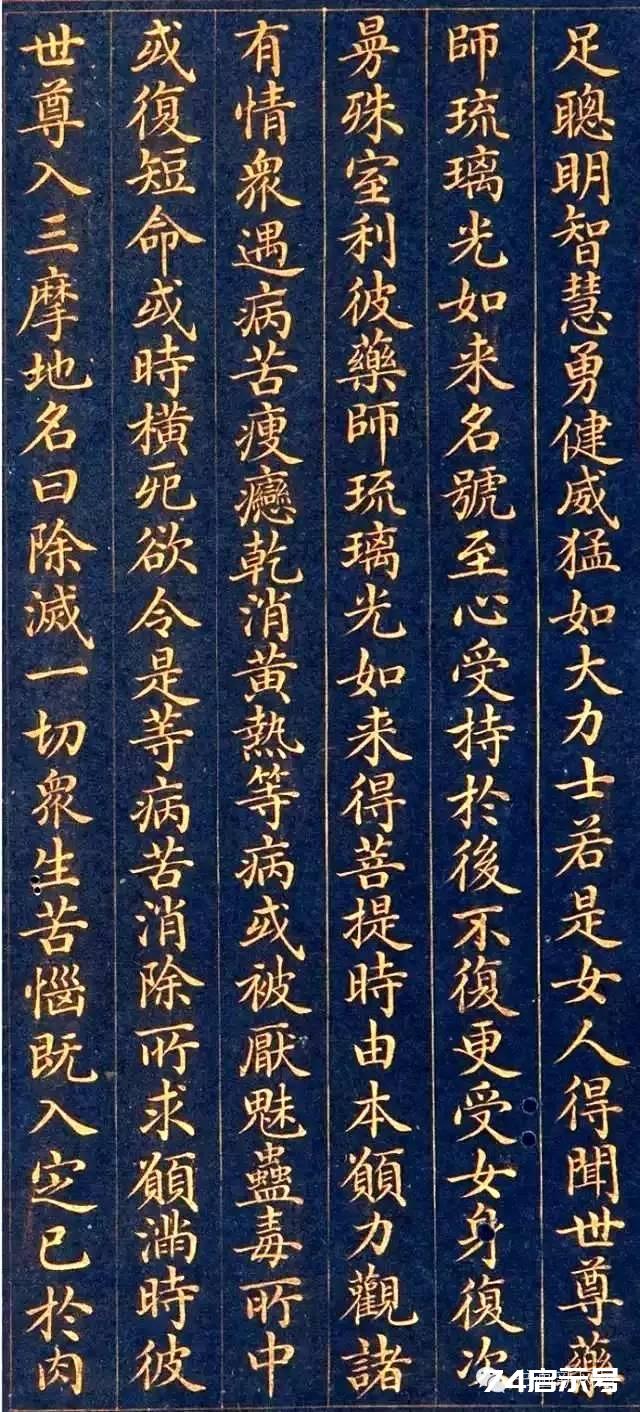 足聰明智慧勇健威猛如大力士若是女人得聞世尊藥
師琉璃光如来名號至心受持於後不復更受女身復次
曼殊室利彼藥師琉璃光如来得菩提時由本願力觀諸
有情衆遇病苦瘦癴乾消黄熱等病或被厭魅蠱毒所中
或復短命或時橫死欲令是等病苦消除所求願滿時彼
世尊入三摩地名曰除滅一切衆生苦惱既入定已於肉
74启示号